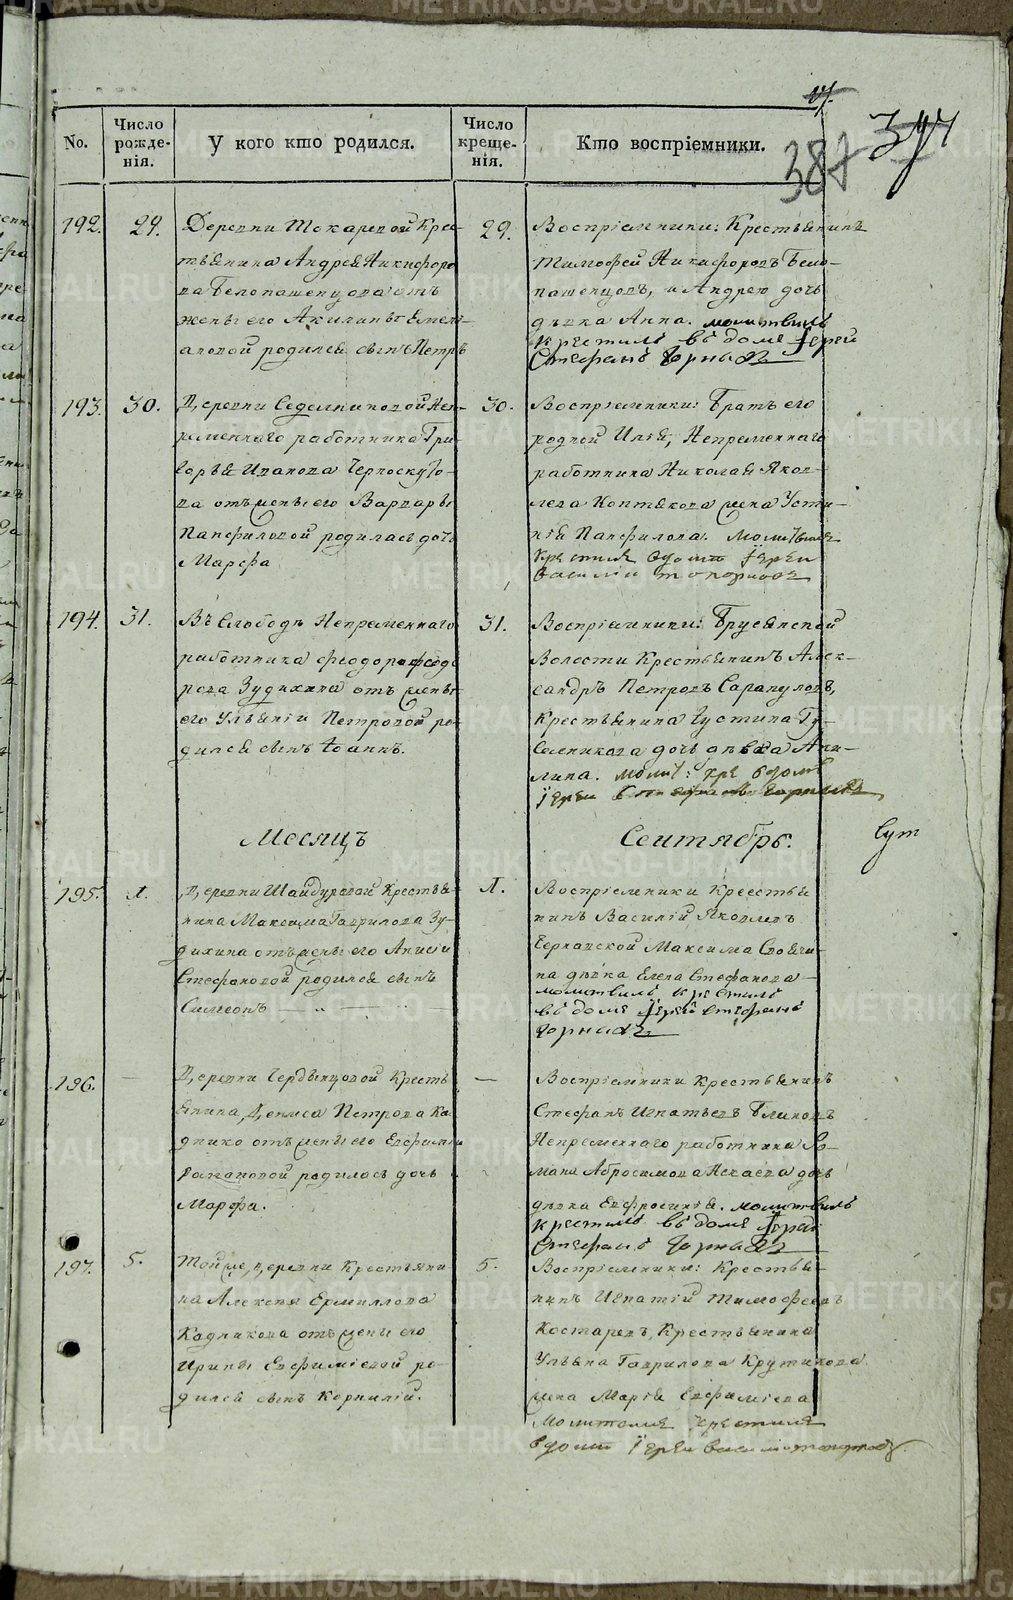 17.
387
No.
Число рожде-нія.
У кого кто родился.
Число креще-нія.
Кто воспріемники.
192.
29.
Деревни Токаревой Крес-
тьянина Андрея Никифоро
ва Белопашенцова отъ
жены его Акилины Емель
ановой родился сынъ Петръ
29.
Воспріемники: Крестьянинъ
Тимофей Никифоровъ Бело-
пашенцовъ, и Андрею дочь
дѣвка Анна. молитвилъ
крестилъ въ доме Іерей
Стефанъ Чорныхъ
193.
30.
Деревни Седелниковой Неп-
ременнаго работника Гри-
горья Иванова Черноскуто-
ва отъ жены его Варвары
Панфиловой родилась дочь
Марфа
30.
Воспріемники: Братъ его
родной Илья, Непременнаго
работника Николая Яков-
лева Коптякова жена Усти-
нія Панфилова. Молитвилъ
крестилъ вдоме Іереи
Василіи Топорковъ
194.
31.
Въ Слободѣ Непременнаго
работника Феодора Феодо
рова Зудихина отъ жены
его Ульяніи Петровой ро-
дился сынъ Іоаннъ.
31.
Воспріемники: Брусянской
Волости Крестьянинъ Алек-
сандръ Петровъ Сарапуловъ,
Крестьянина Густина Гу-
селникова дочь дѣвка Аки-
лина. молит: кре вдоме
Іереи Стефанъ Чорныхъ
Месяцъ
Сентябрь.
195.
1.
Деревни Шайдуровой Крестья-
нина Максима Гаврилова Зу-
дихина отъ жены его Анисіи
Стефановой родился сынъ
Симеонъ
1.
Воспріемники Креестья
нинъ Василій Яковлевъ
Чернавской Максима
на дѣвка Елена Стефанова
молитвилъ крестилъ
въ доме Іерей Стефанъ
Чорныхъ
196.
—
Деревни Чердынцовой Кресть
янина Дениса Петрова Ка
днико отъ жены его Евфиміи
родилась дочь
Марфа.
—
Воспріемники Крестьянинъ
Стефанъ Игнатьевъ Блиновъ
Непременнаго работника Ро-
мана Абросимова Искаева дочь
дѣвка Евфросинія. молитвилъ
крестилъ въ доме Іерей
Стефанъ Чорныхъ
197.
5.
Той же деревни Крестьяни-
на Алексея Ермиллова
Кадникова отъ жены его
Ирины Евфиміевой ро-
дился сынъ Корнилій.
5.
Воспріемники: Крестья-
нинъ Игнатій Тимофеевъ
Костаревъ, Крестьянина
Ульяна Гаврилова Крутикова
жена Марія Евфиміева
Молитвилъ крестилъ
вдоме Іереи Василіи Топорковъ
METRIKI.GASO-URAL.RU